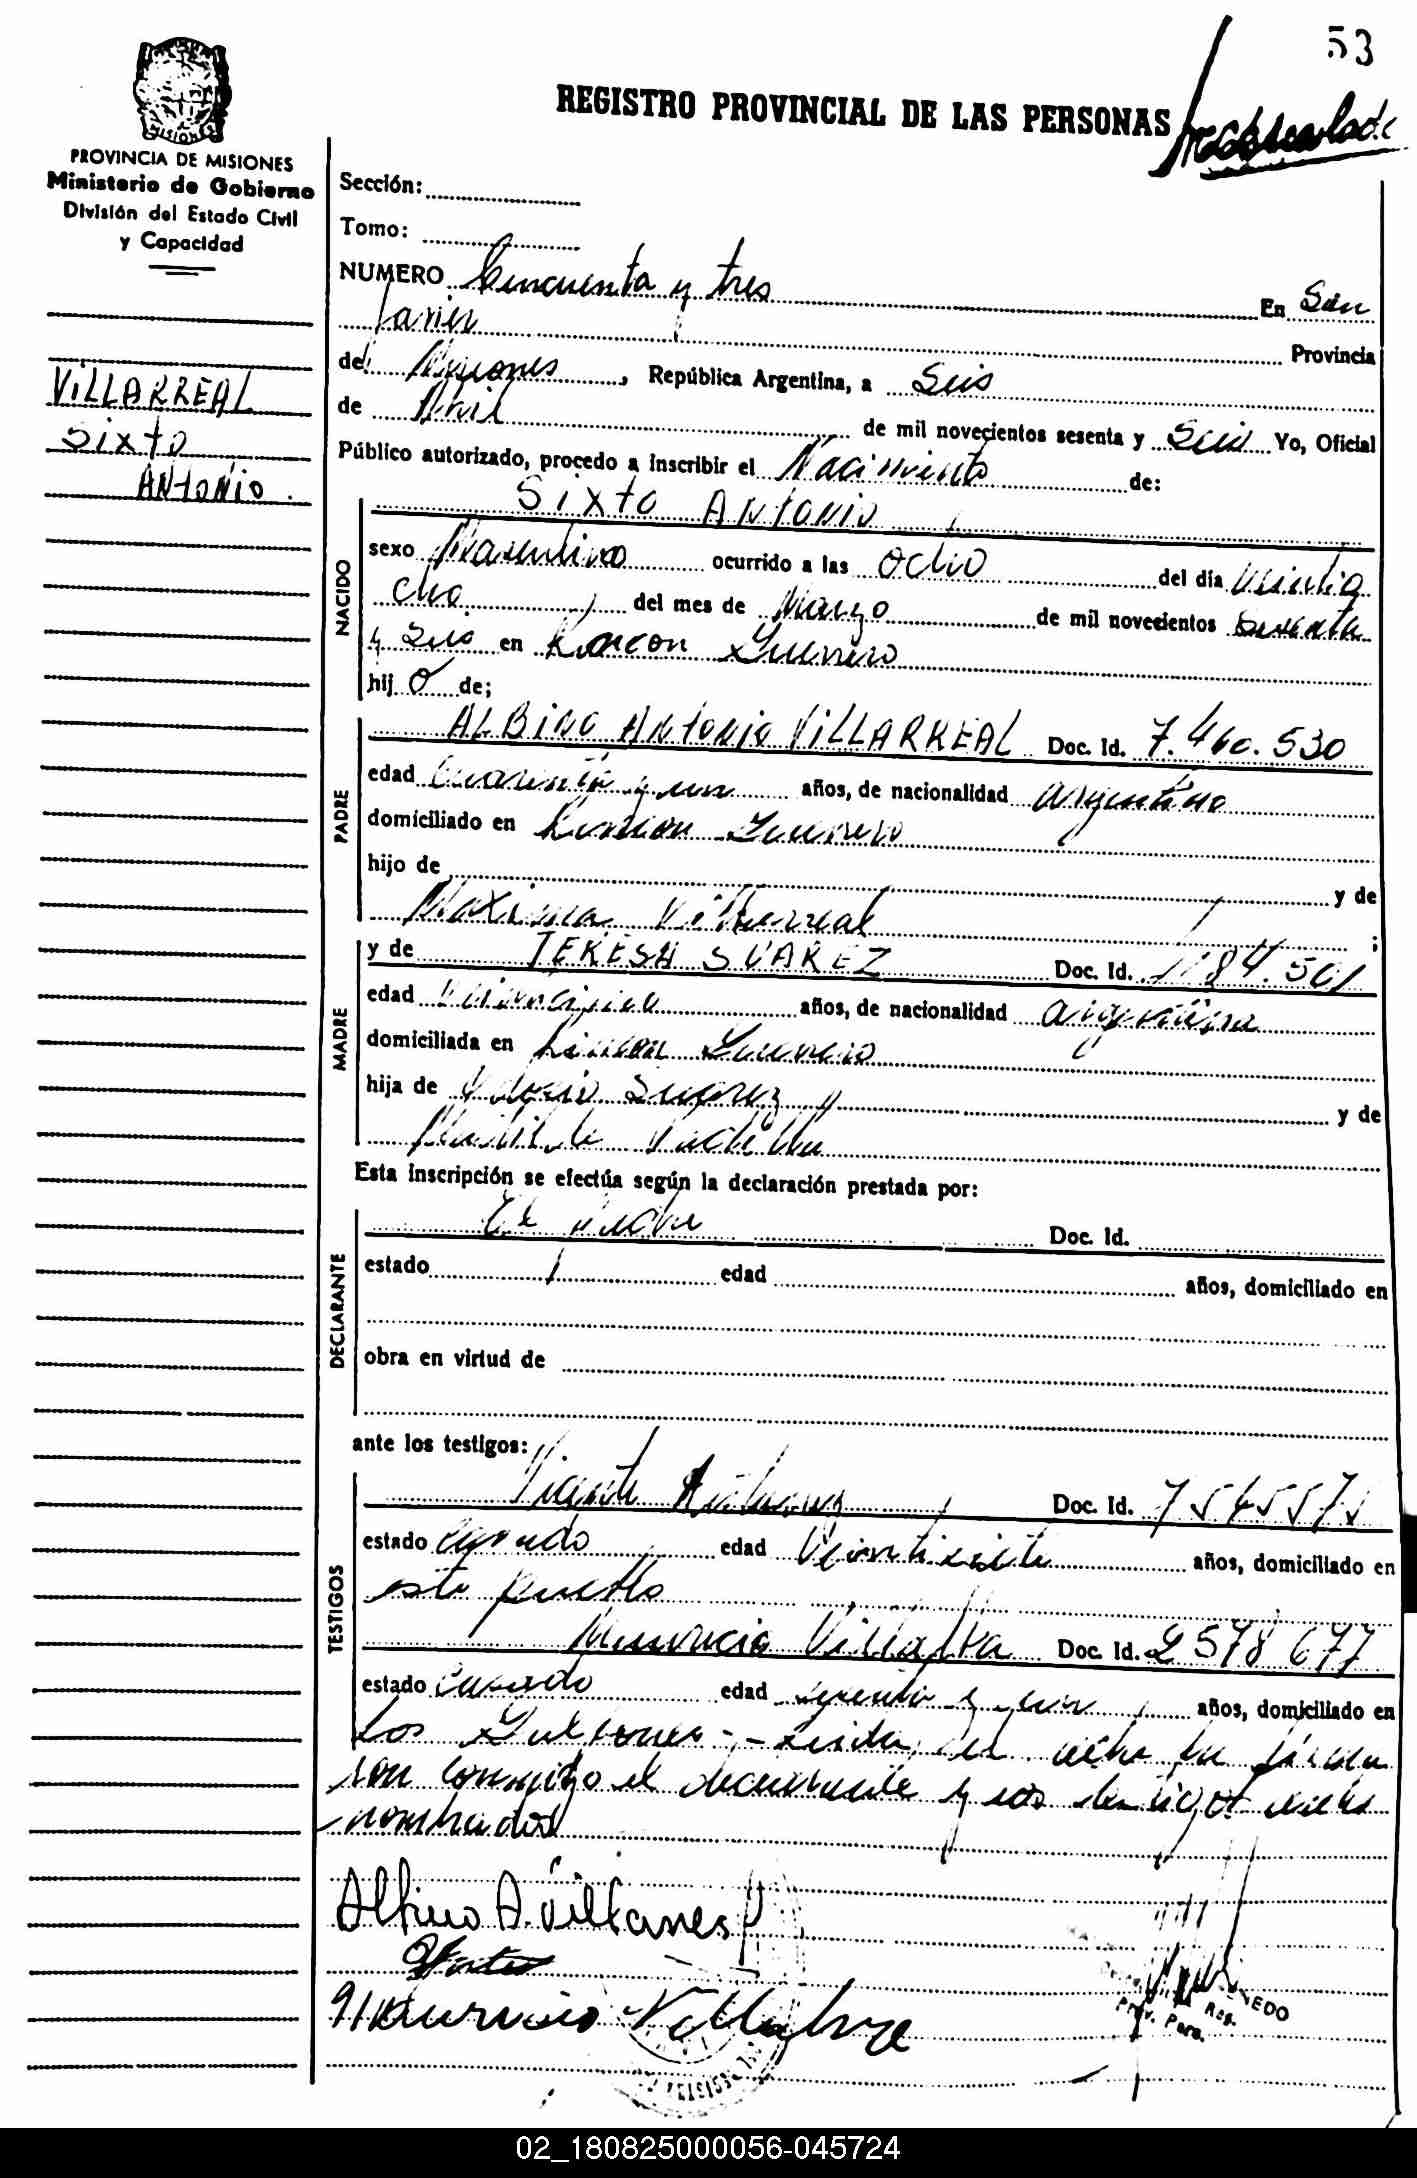 53
REGISTRO PROVINCIAL DE LAS PERSONAS
MISIONES
PROVINCIA DE MISIONES
Ministerio de Gobierno
División del Estado Civil
y Capacidad
VILLARREAL
Sixto
ANtoNio.
Sección:
Tomo:
NUMERO Cincuenta y tres En San
Javier Provincia
de Misiones, República Argentina, a Seis
de Abril de mil novecientos sesenta y Seis Yo, Oficial
Público autorizado, procedo a inscribir el Nacimiento de:
Sixto ANtoNio
NACIDO
sexo Masculino ocurrido a las ocho del día Veintio
cho del mes de Marzo de mil novecientos Sesenta
y Seis en Rincon Guerrero
hijo de;
PADRE
ALBINO ANtoNio VILLARREAL Doc. Id. 7.460.530
edad Cuarenta y un años, de nacionalidad argentino
domiciliado en Rincon Guerrero
hijo de y de
Maxima Villarreal ;
MADRE
y de TERESA SUAREZ Doc. Id. 184.501
edad años, de nacionalidad argentina
domiciliada en Rincon Guerrero
hija de Suarez y de
Matilde
Esta inscripción se efectúa según la declaración prestada por:
DECLARANTE
El Padre Doc. Id.
estado edad años, domiciliado en
obra en virtud de
ante los testigos:
TESTIGOS
Vicente Doc. Id. 7545571
estado casado edad Veintisiete años, domiciliado en
este pueblo
Mauricio Villalba Doc. Id. 2578677
estado Casado edad y un años, domiciliado en
Los Galpones - Leida el acta la firman
con conmigo el declarante y los testigos
nombrados
Albino A. Villarreal
Mauricio Villalba
Prov. Pers.
02_180825000056-045724